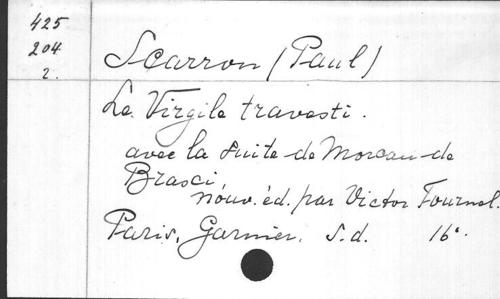 425
204
2.
Scarron (Paul)
Le Virgile travesti.
avec la suite de Moreau de
Brasci,
nouv. éd. par Victor Fournel.
Paris, Garnier. S.d. 16°.